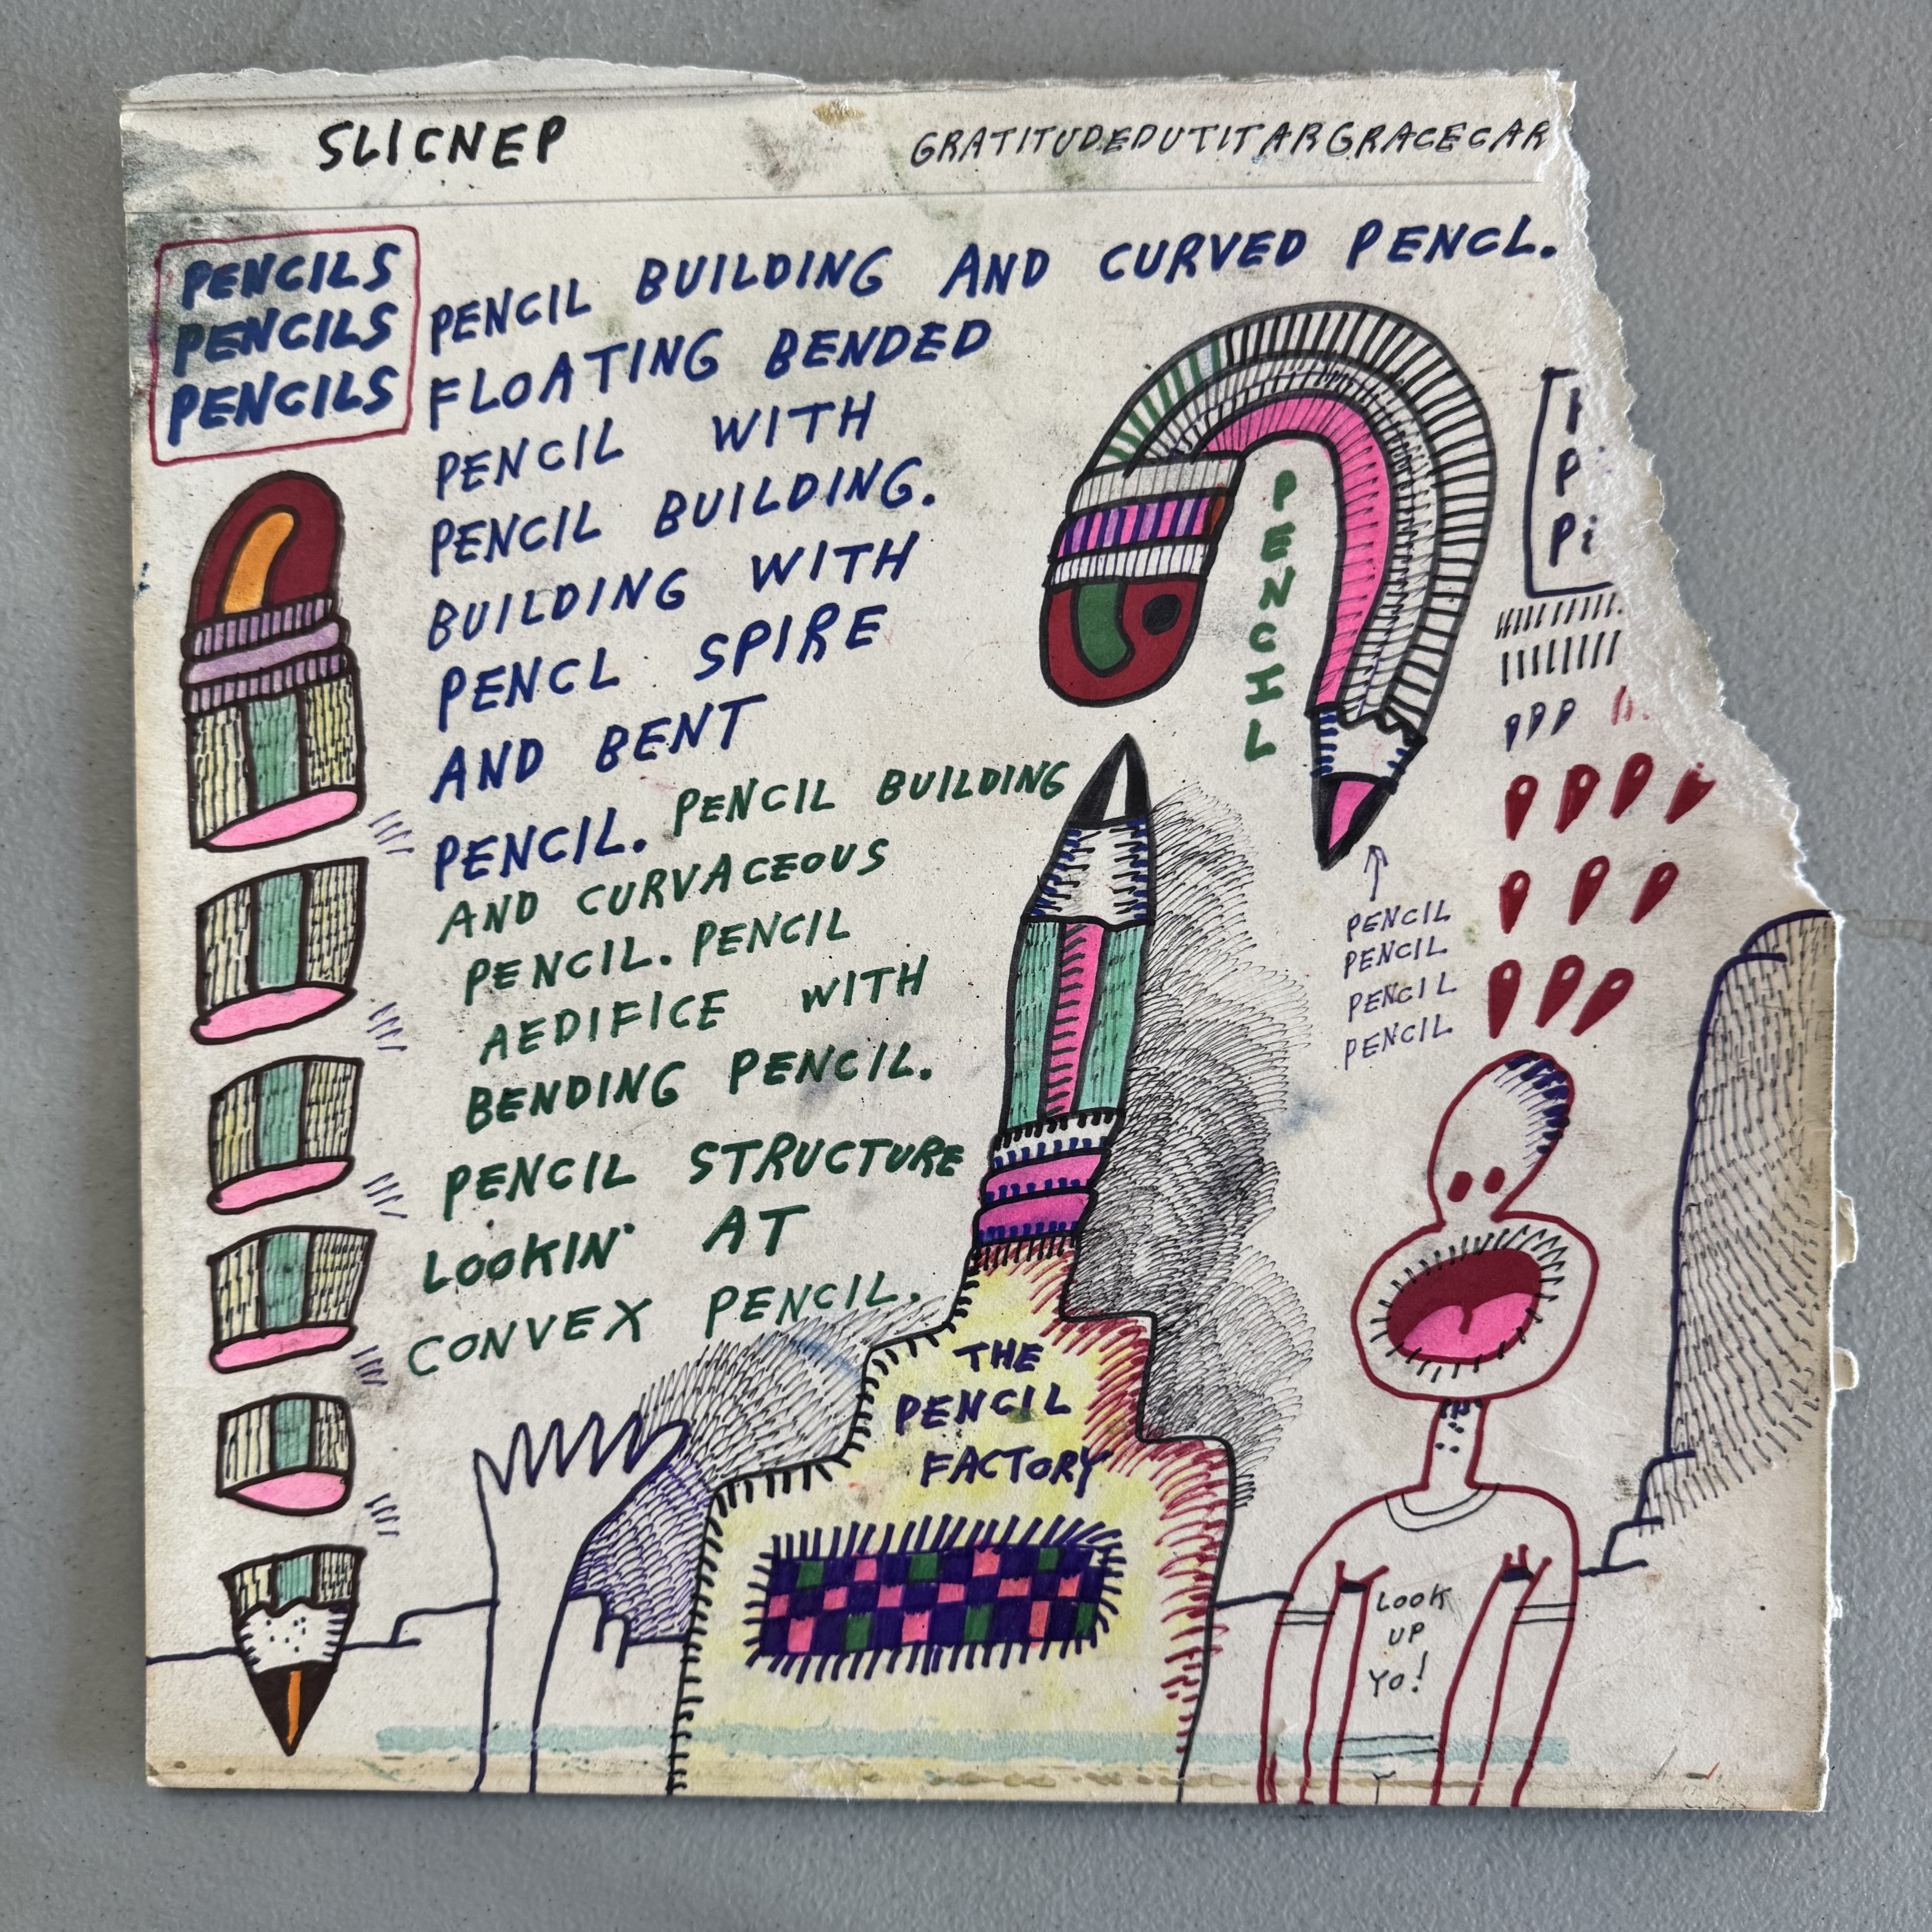 SLICNEP
GRATITUDEDUTITARGRACECAR
PENCILS
PENCILS
PENCILS
PENCIL BUILDING AND CURVED PENCL.
FLOATING BENDED
PENCIL WITH
PENCIL BUILDING.
BUILDING WITH
PENCL SPIRE
AND BENT
PENCIL. PENCIL BUILDING
AND CURVACEOUS
PENCIL. PENCIL
AEDIFICE WITH
BENDING PENCIL.
PENCIL STRUCTURE
LOOKIN' AT
CONVEX PENCIL.
PENCIL
P
Pi
PENCIL
PENCIL
PENCIL
PENCIL
THE
PENCIL
FACTORY
LOOK
UP
YO!